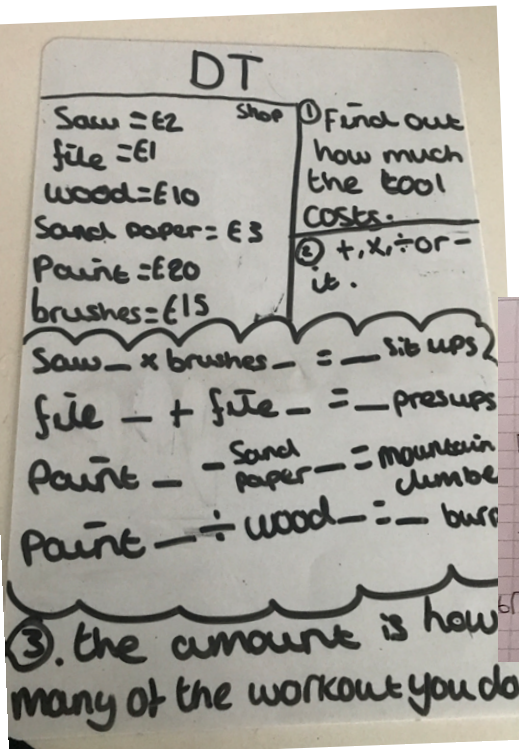 DT
Shop
Saw = £2
file = £1
wood = £10
Sand paper = £3
Paint = £20
brushes = £15
① Find out
how much
the tool
costs.
② +, x, ÷ or -
it.
Saw _ x brushes _ = _ sit ups
file _ + file _ = _ presups
Paint _ - Sand paper _ = _ mountain climbe
Paint _ ÷ wood _ = _ burp
③. the amount is how
many of the workout you do